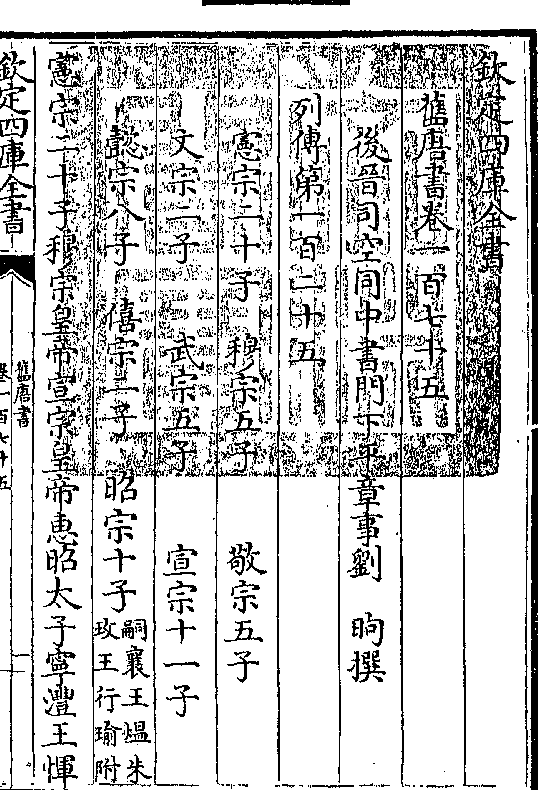 欽定四庫全書
舊唐書卷一百七十五
後晉司空同中書門下平章事劉 昫撰
列傳第一百二十五
憲宗二十子 穆宗五子 敬宗五子
文宗二子 武宗五子 宣宗十一子
懿宗八子 僖宗二子 昭宗十子 嗣襄王熅朱
玫王行瑜附
憲宗二十子穆宗皇帝宣宗皇帝惠昭太子寧澧王惲
欽定四庫全書
舊唐書
卷一百七十五
一